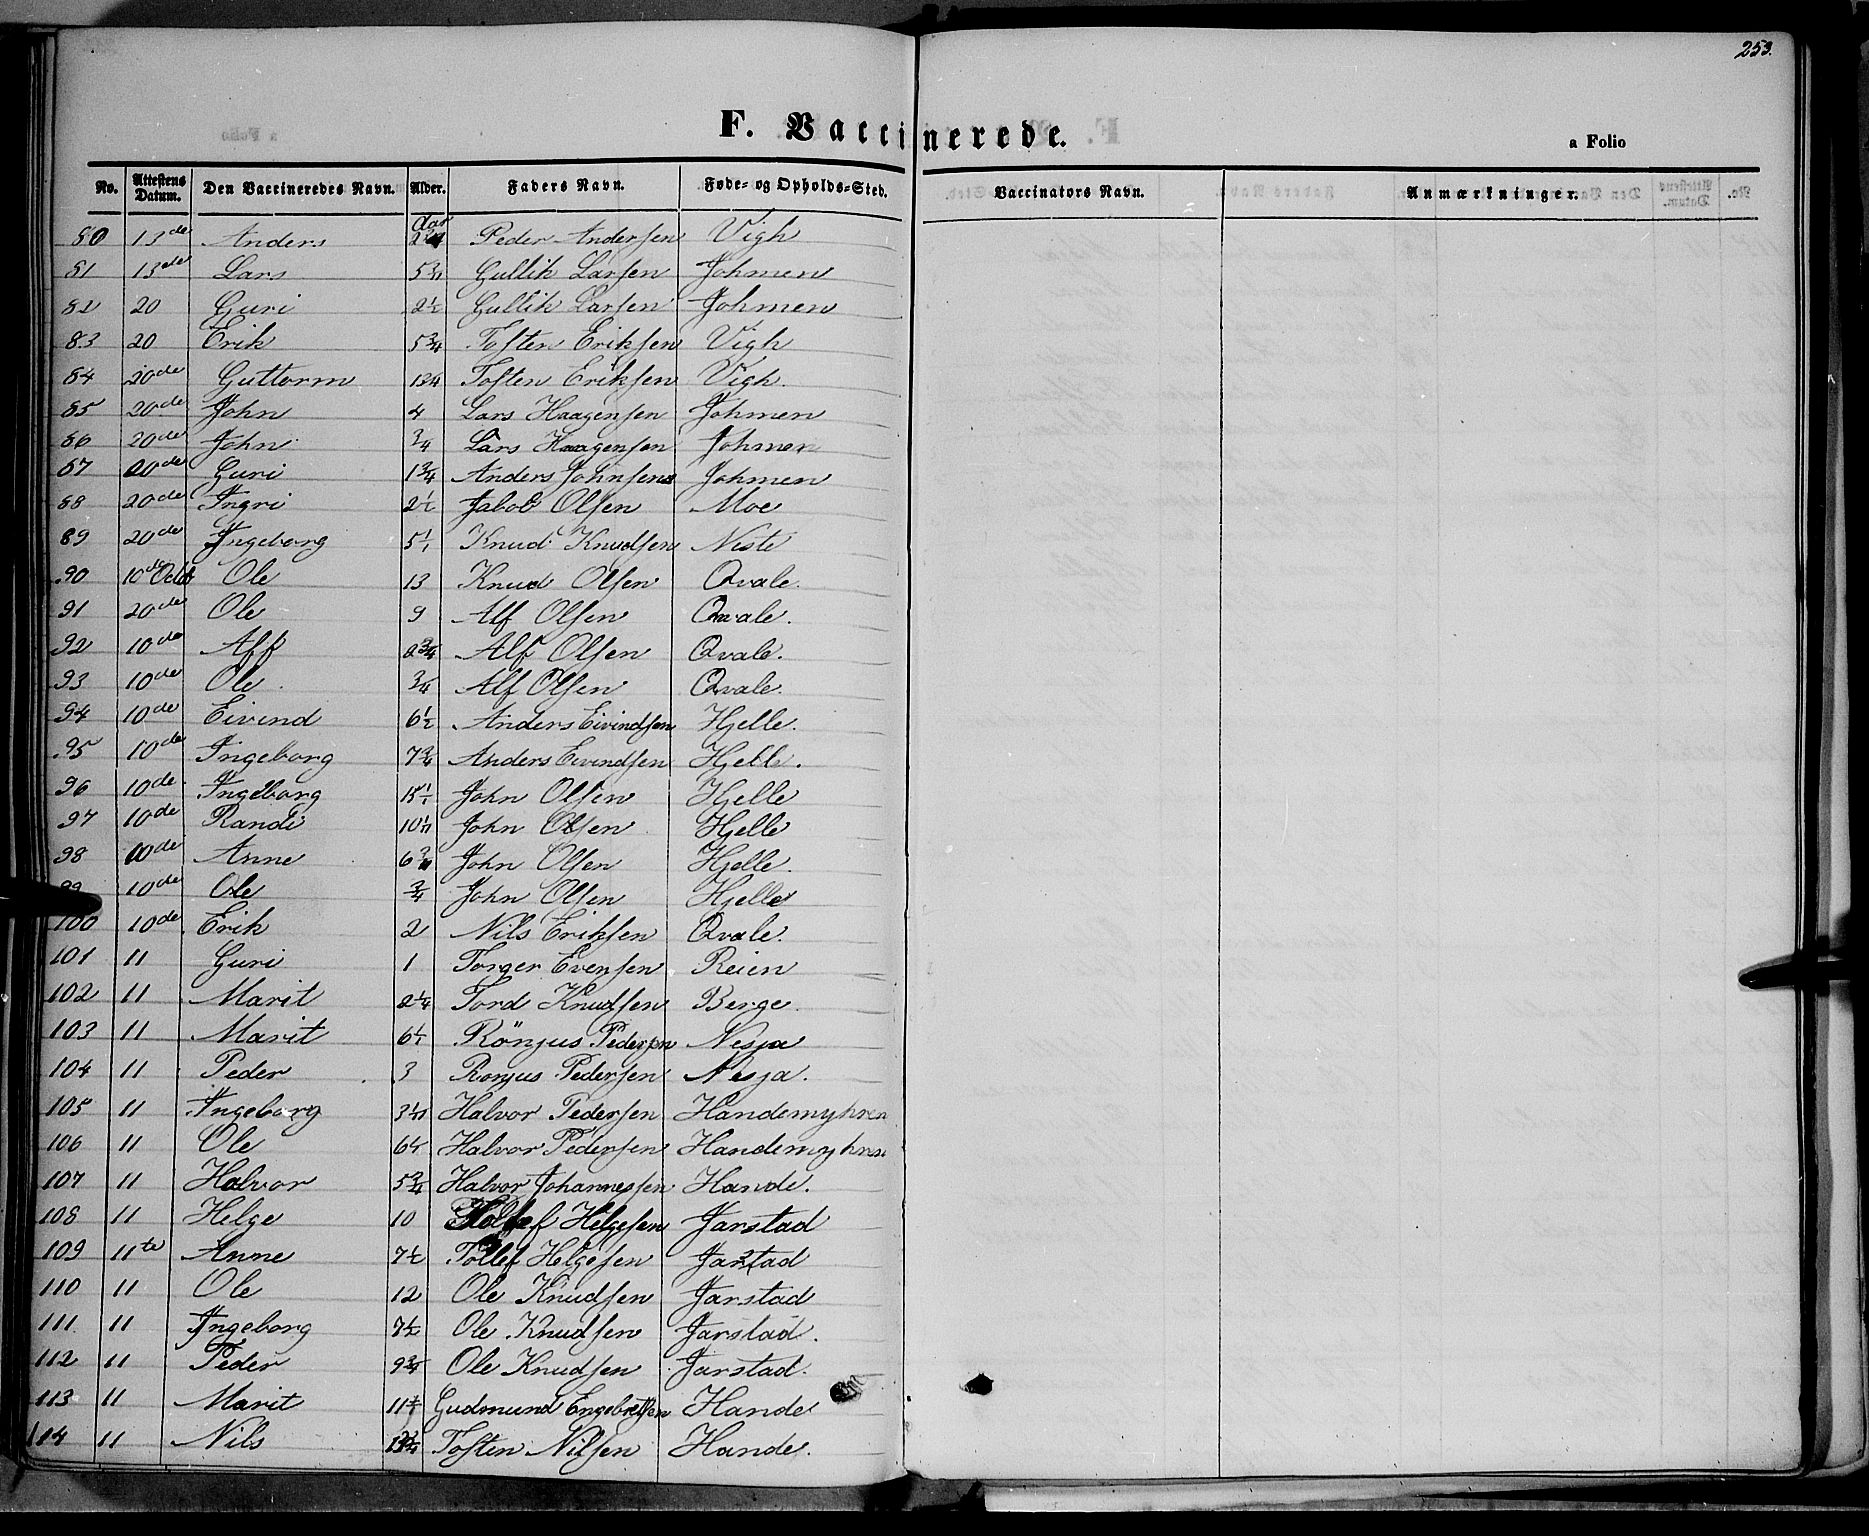 253.
F. Vaccinerede.
a Folio
No. Attestens Datum. Den Vaccineredes Navn. Alder. Faders Navn. Føde- og Opholds-Sted. Vaccinators Navn. Anmærkninger.
Aar
80 13de Anders Peder Andersen Vigh
81 13de Lars Gullik Larsen Johmen
82 20 Guri 2½ Gullik Larsen Johmen
83 20 Erik 5¾ Tosten Eriksen Vigh
84 20de Guttorm Tosten Eriksen Vigh.
85 20de John 4 Lars Haagensen Johmen
86 20de John ¾ Lars Haagensen Johmen
87 20de Guri 1¾ Anders Johnsen Johmen
88 20de Ingri 2½ Jakob Olsen Moe
89 20de Ingeborg Knud Knudsen Neste
90 10de Octb Ole 13 Knud Olsen Qvale.
91 20de Ole 9 Alf Olsen Qvale.
92 10de Alf 2¾ Alf Olsen Qvale.
93 10de Ole ¾ Alf Olsen Qvale.
94 10de Eivind 6½ Anders Eivindsen Hjelle.
95 10de Ingeborg 7¾ Anders Eivindsen Hjelle.
96 10de Ingeborg John Olsen Hjelle
97 10de Randi John Olsen Hjelle
98 10de Anne John Olsen Hjelle.
99 10de Ole ¾ John Olsen Hjelle
100 10de Erik 2 Nils Eriksen Qvale.
101 11 Guri 1 Torger Evensen Reien
102 11 Marit 2¼ Tord Knudsen Berge.
103 11 Marit Rönjus Pedersen Nesja
104 11 Peder 3 Ronjus Pedersen Nesja.
105 11 Ingeborg Halvor Pedersen Handemyhren
106 11 Ole Halvor Pedersen Handemyhren
107 11 Halvor 5¾ Halvor Johannessen Hande.
108 11 Helge 10 Helgesen Jarstad
109 11te Anne 7½ Tollef Helgesen Jarstad
110 11 Ole 12 Ole Knudsen Jarstad
111 11 Ingeborg 7½ Ole Knudsen Jarstad.
112 11 Peder 9¾ Ole Knudsen Jarstad.
113 11 Marit Gudmund Engebretsen Hande
114 11 Nils Tosten Nilsen Hande.